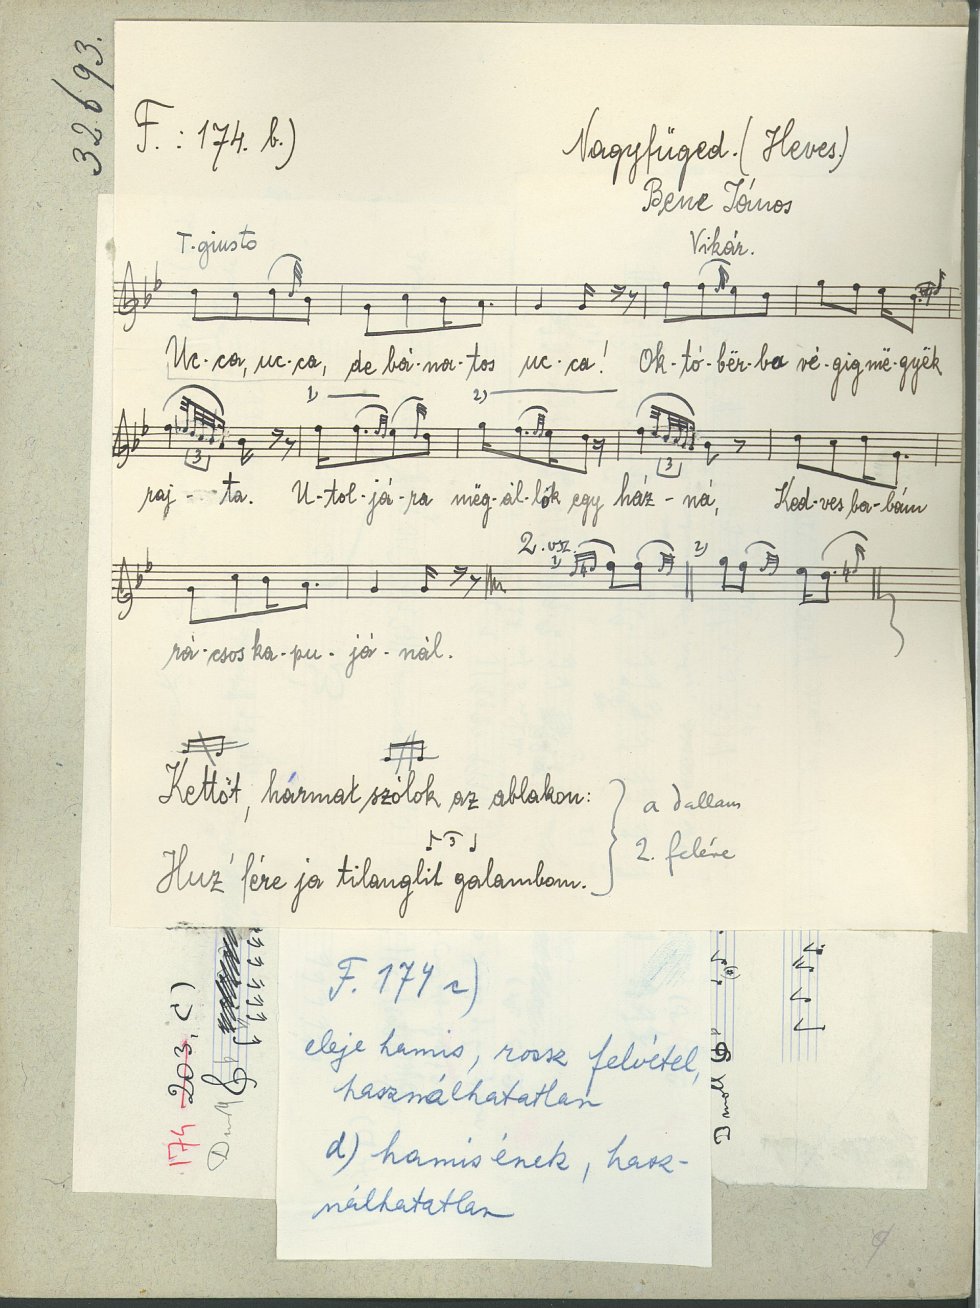 32693.
F.: 174. b.)
Nagyfüged. (Heves.)
Bene János
T. giusto
Vikár.
Uc-ca, uc-ca, de bá-na-tos uc-ca! Ok-tó-bër-ba vé-gig më-gyëk
1) 2)
3 3
raj-ta. U-tol-já-ra mëg-ál-lök egy ház-ná, Ked-ves ba-bám
2. vsz. 1) 2)
rá-csos ka-pu-já-nál.
Kettőt, hármat szólok az ablakon:
a dallam
3
2. felére
Huz' fére ja tilanglit galambom.
F. 174 c)
eleje hamis, rossz felvétel,
használhatatlan
d) hamis ének, hasz-
nálhatatlan
174 203. c)
D moll
D moll